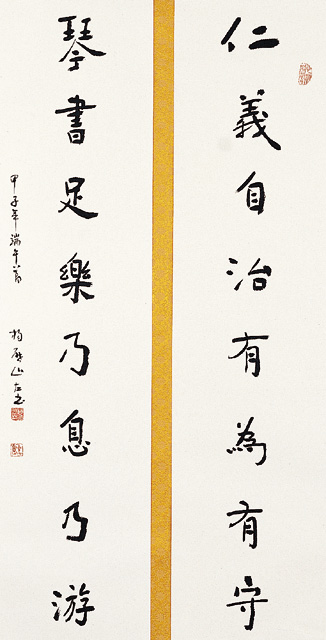 仁義自治有為有守
琴書足樂乃息乃游
甲子年端午前